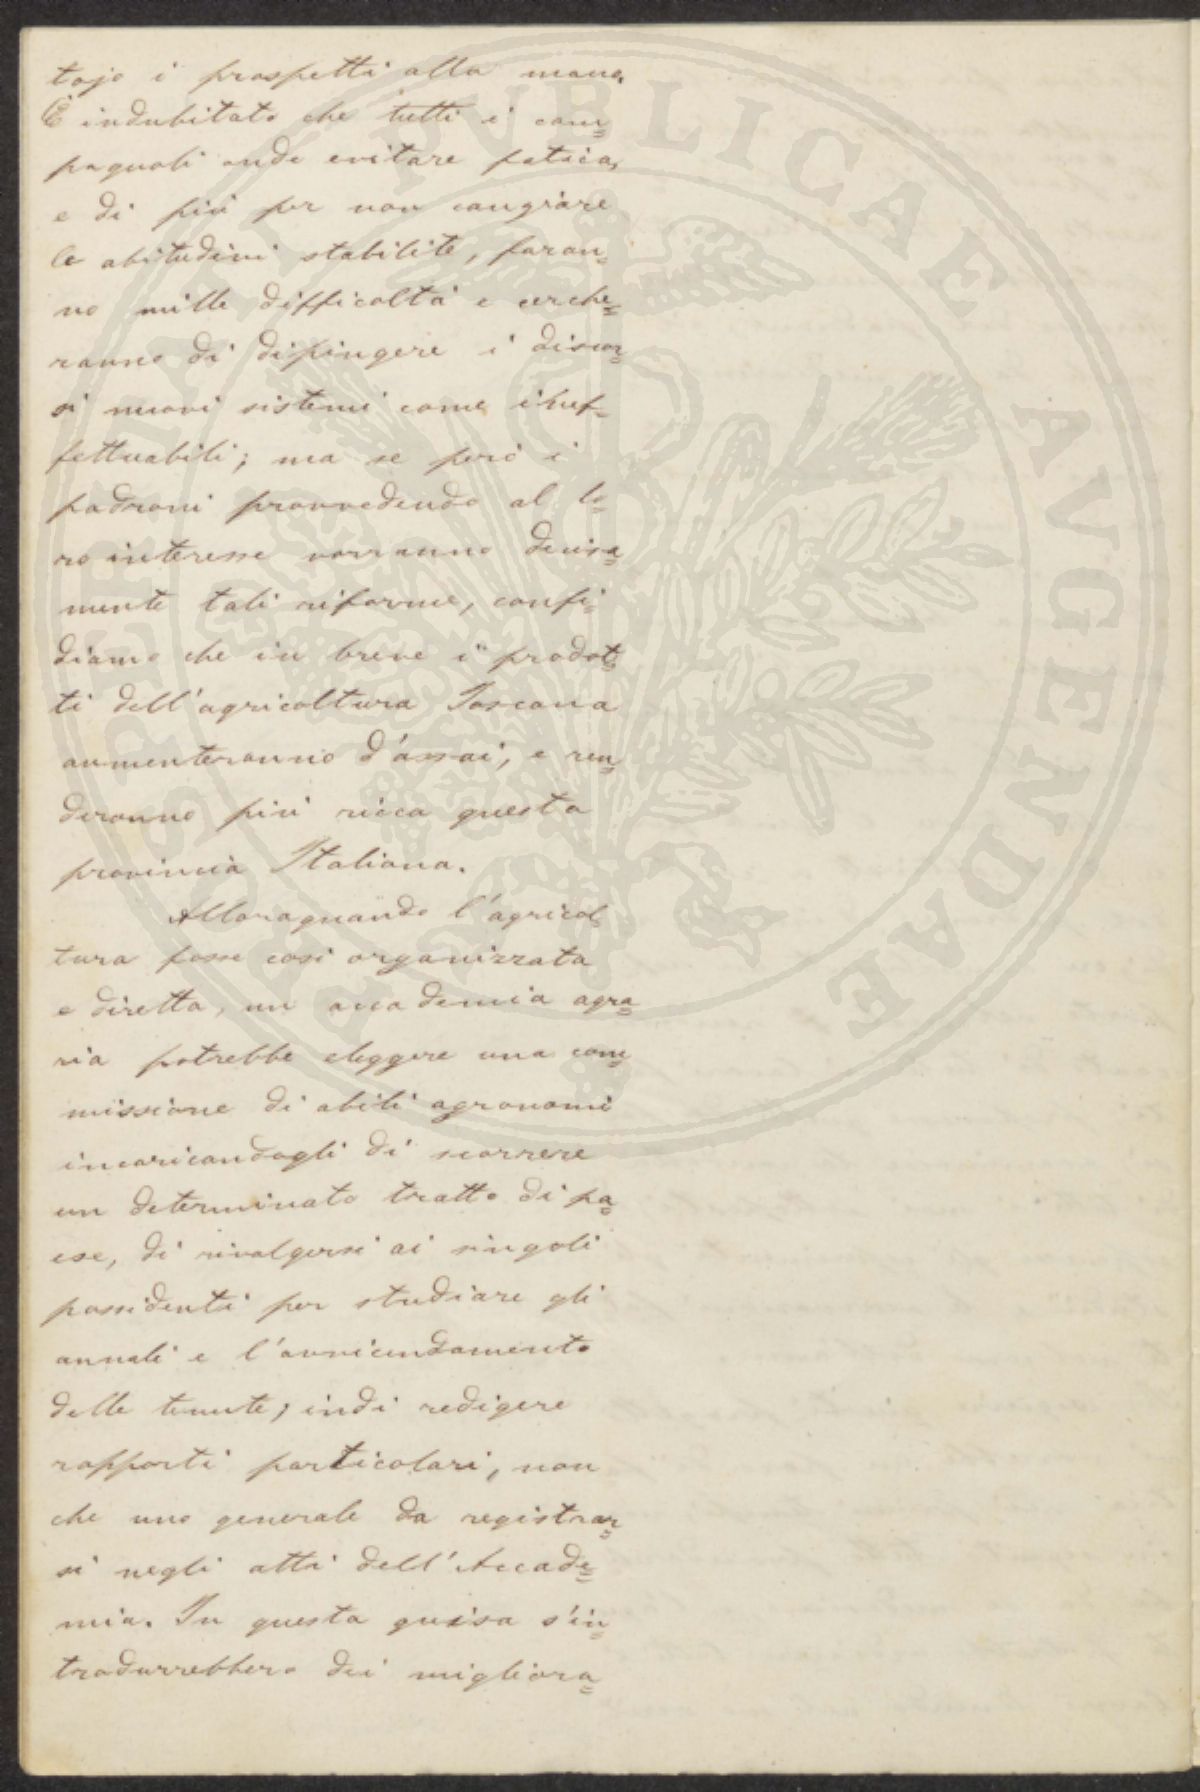 tojo i prospetti alla mano.
È indubitato che tutti i cam=
pagnoli onde evitare fatica,
e di più per non cangiare
le abitudini stabilite, faran=
no mille difficoltà e cerche=
ranno di dipingere i discor=
si nuovi sistemi come inef=
fettuabili; ma se però i
padroni provvedendo al lo=
ro interesse vorranno decisa=
mente tali riforme, confi=
diamo che in breve i prodot=
ti dell'agricoltura Toscana
aumenteranno d'assai, e ren=
deranno più ricca questa
provincia Italiana.
Alloraquando l'agricol=
tura fosse così organizzata
e diretta, un accademia agra=
ria potrebbe eleggere una com=
missione di abili agronomi
incaricandogli di scorrere
un determinato tratto di pa=
ese, di rivolgersi ai singoli
possidenti per studiare gli
annali e l'avvicendamento
delle tenute; indi redigere
rapporti particolari, non
che uno generale da registrar=
si negli atti dell'Accade=
mia. In questa guisa s'in=
trodurrebbero dei migliora=
PUBLICAE AUGENDAE
PROSPERITATI